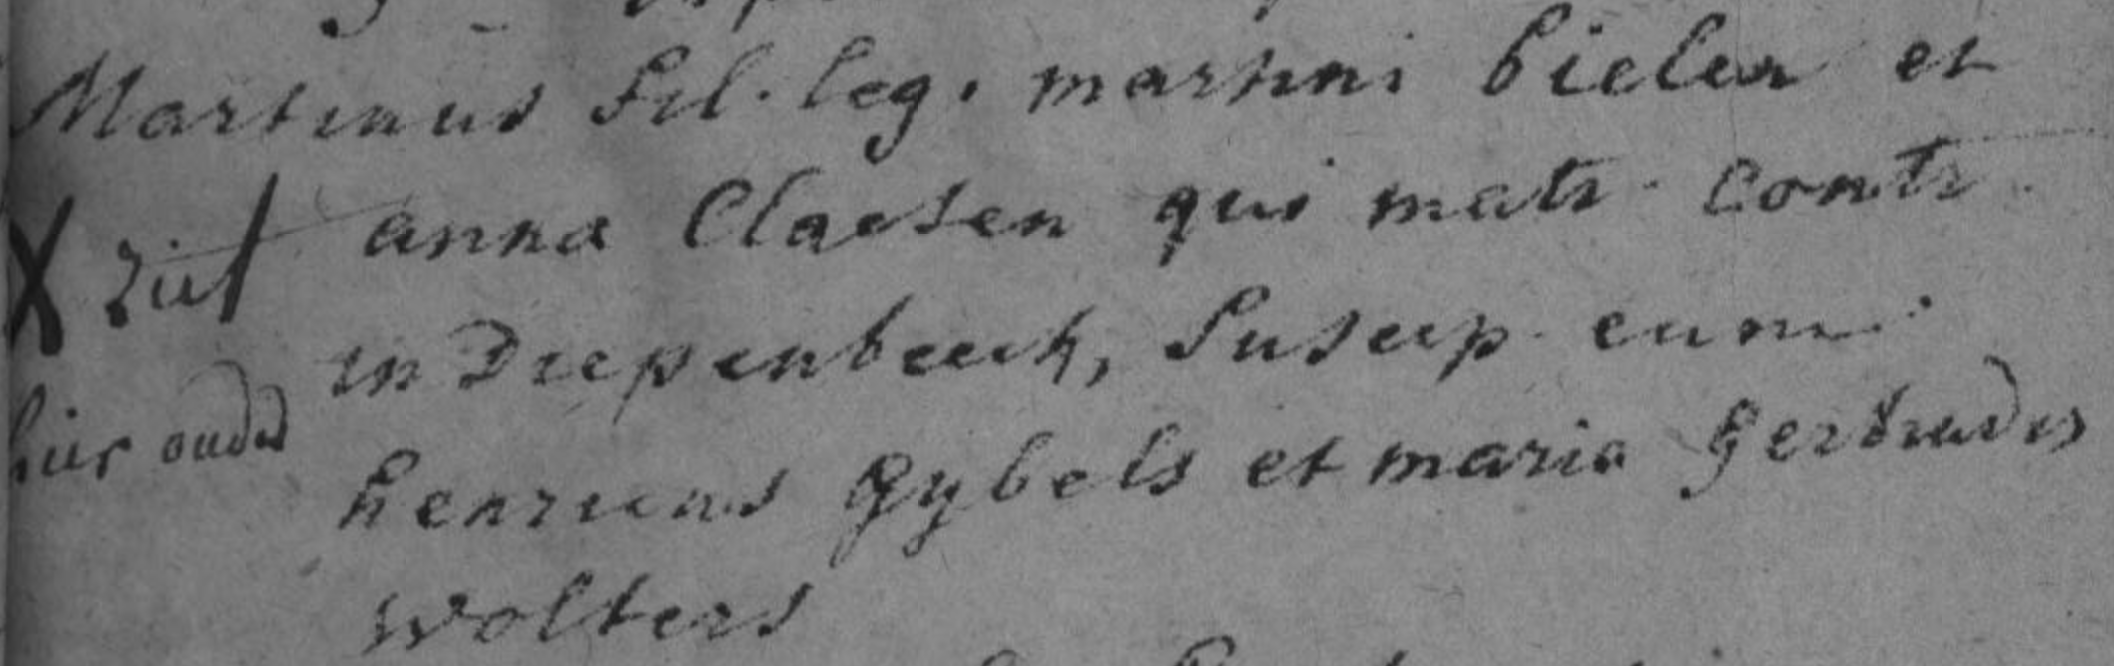 Martinus fil. leg. martini bielen et
X ziet anna Claesen qui matr. contr.
in Diepenbeeck, Suscep. eum
hier onder henricus Gybels et maria gertrudis
wolters